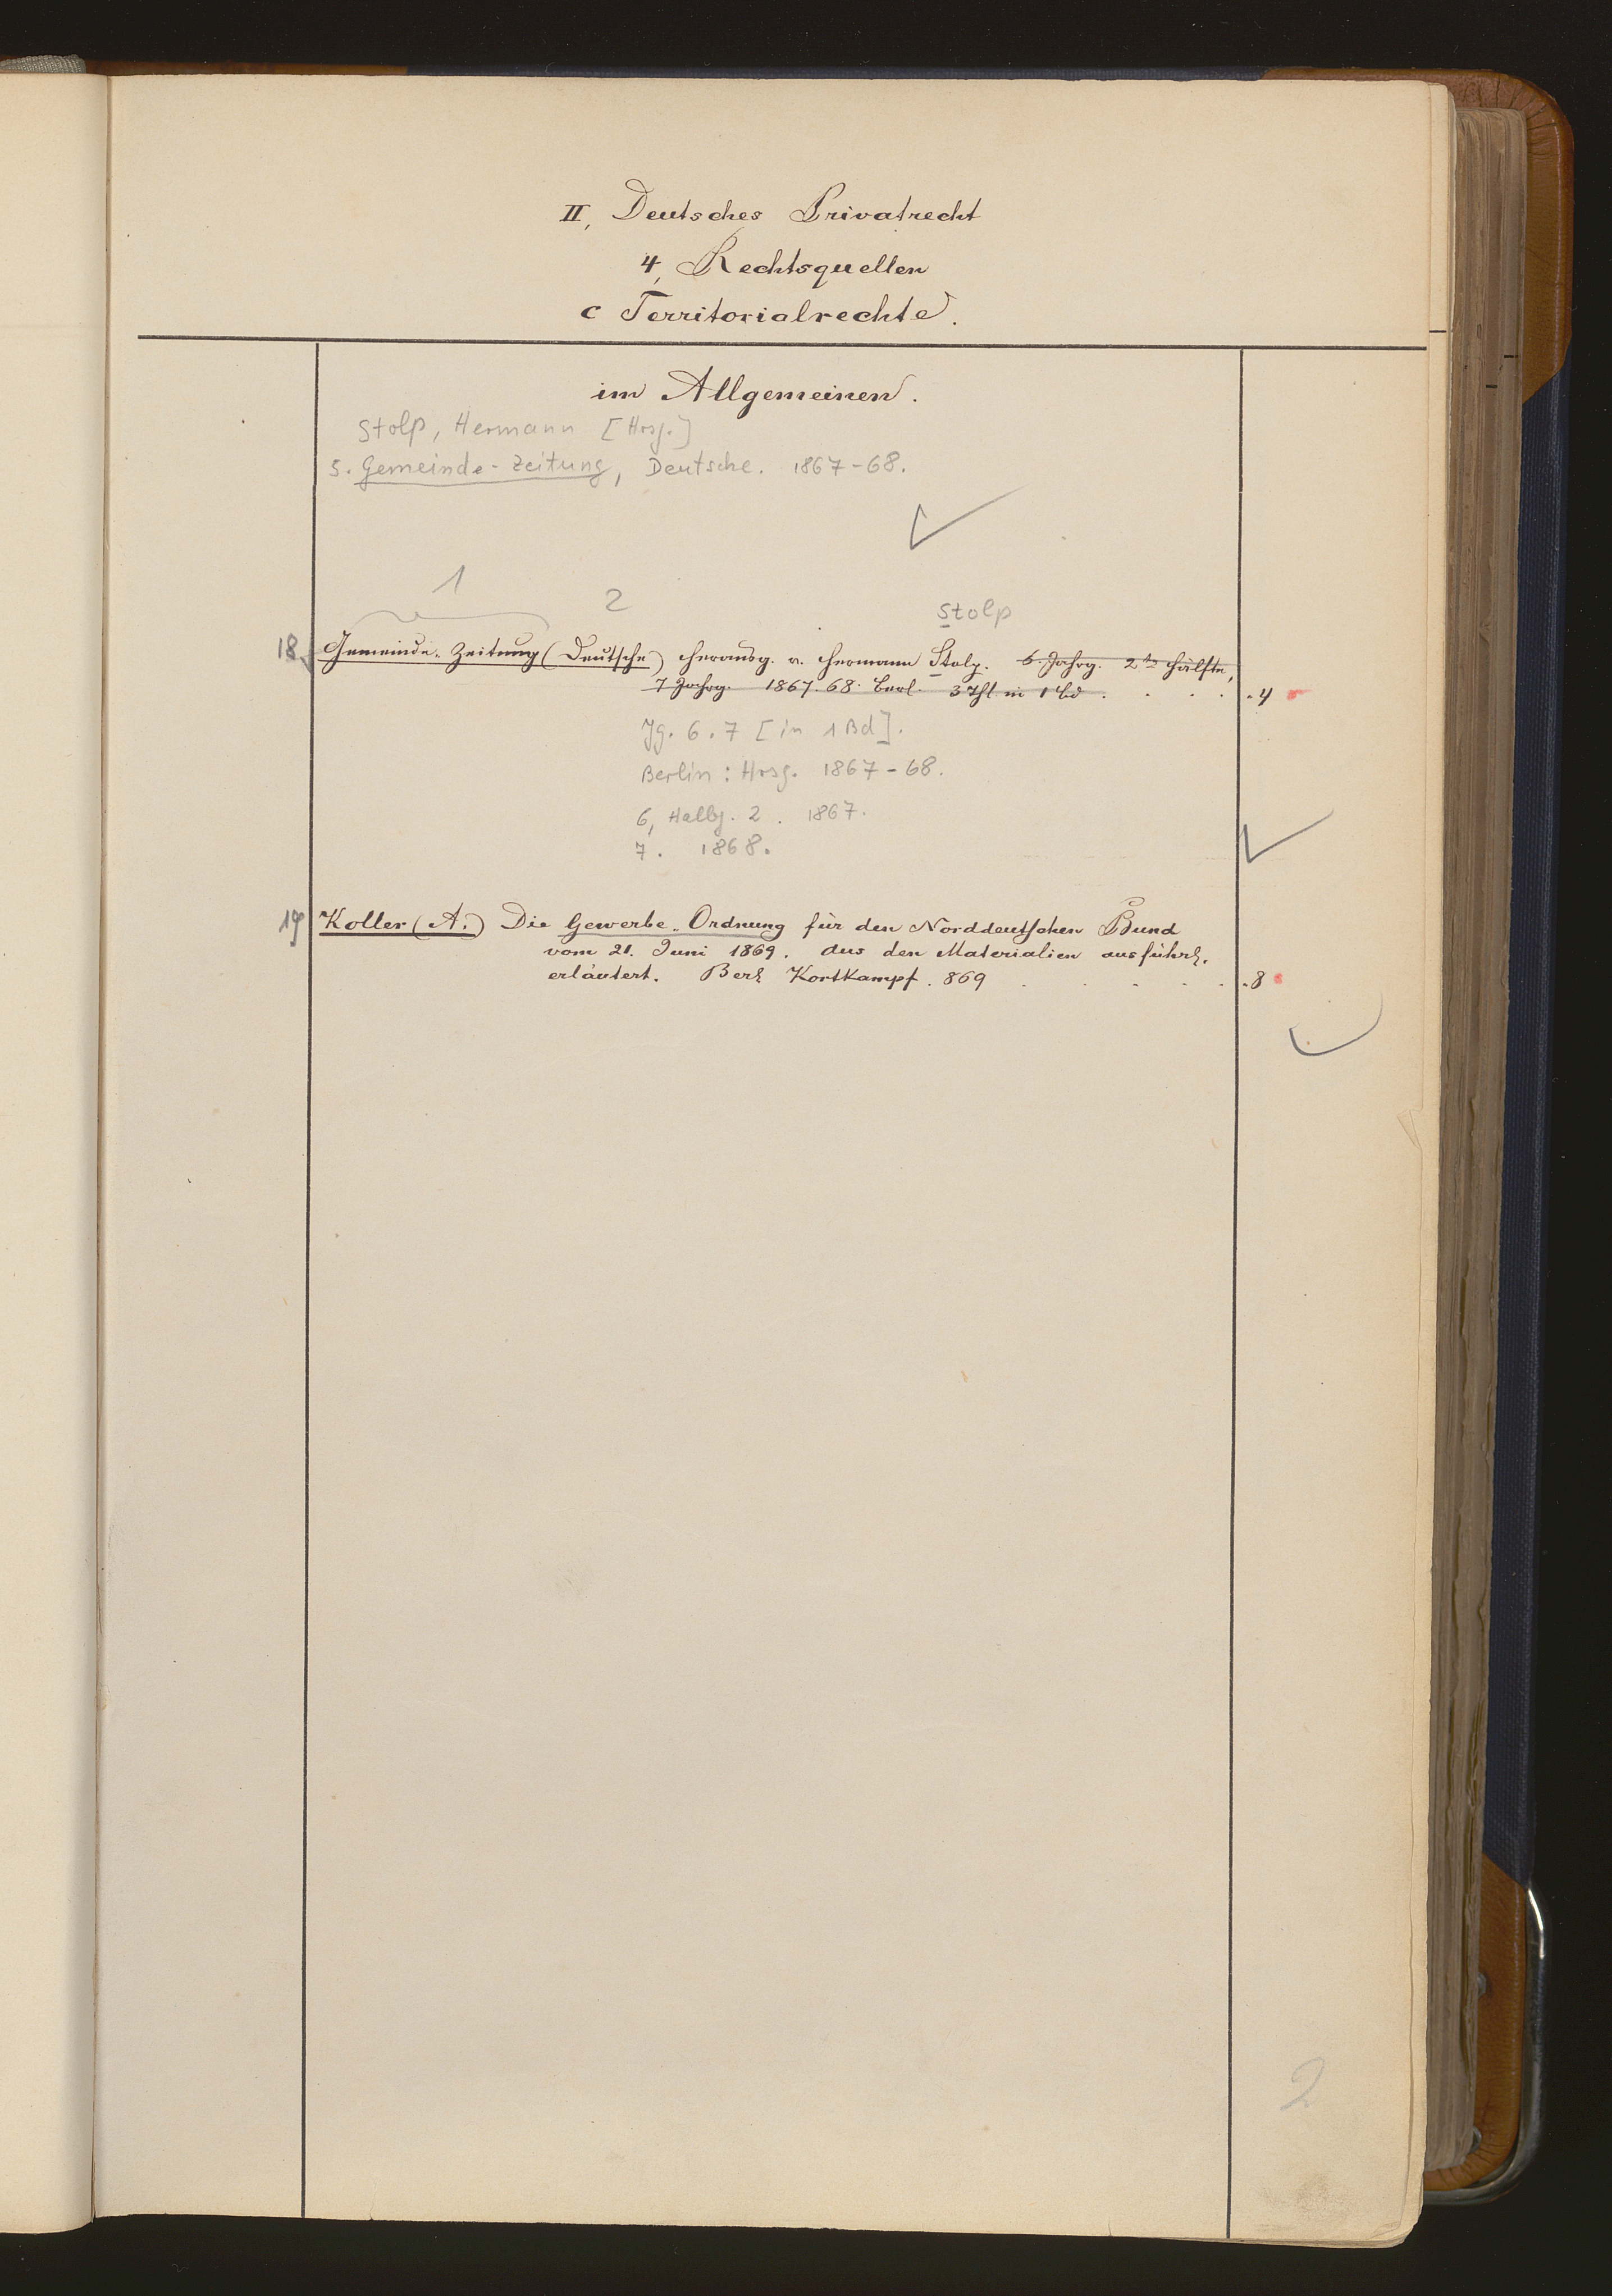 II, Deutsches Privatrecht
4, Rechtsquellen
c Territorialrechte.
im Allgemeinen.
Stolp, Hermann [Hrsg.]
s. Gemeinde-Zeitung, Deutsche. 1867-68.
1
2
Stolp
18 Gemeinde-Zeitung (Deutsche) herausg. v. Hermann Stolp. 6 Jahrg. 2te Hälfte,
7 Jahrg. 1867.68. Berl. 3 Thl. in 1 Bd . . . . . 4
Jg. 6.7 [in 1 Bd].
Berlin: Hrsg. 1867-68.
6, Halbj. 2. 1867.
7. 1868.
19 Koller (A.) Die Gewerbe-Ordnung für den Norddeutschen Bund
vom 21. Juni 1869. Aus den Materialien ausführl.
erläutert. Berl Kortkampf. 869 . . . . . . 8
2